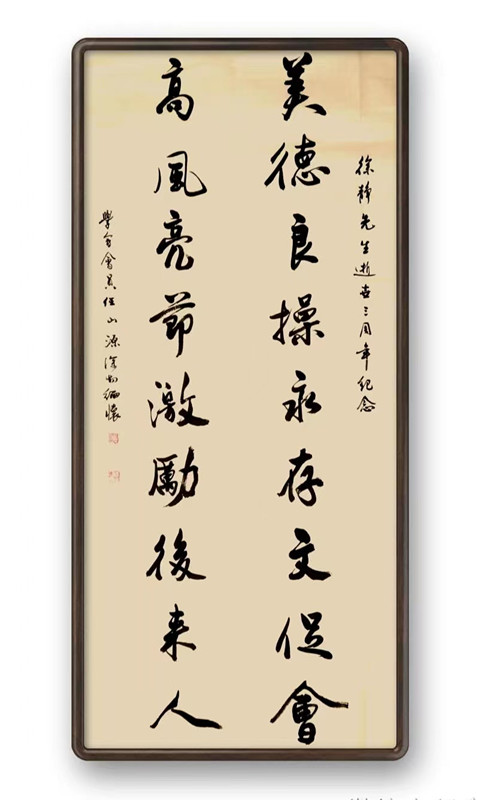 徐静先生逝世三周年纪念
美德良操永存文促會
高風亮節激勵後来人
學會員任山源深切緬懷